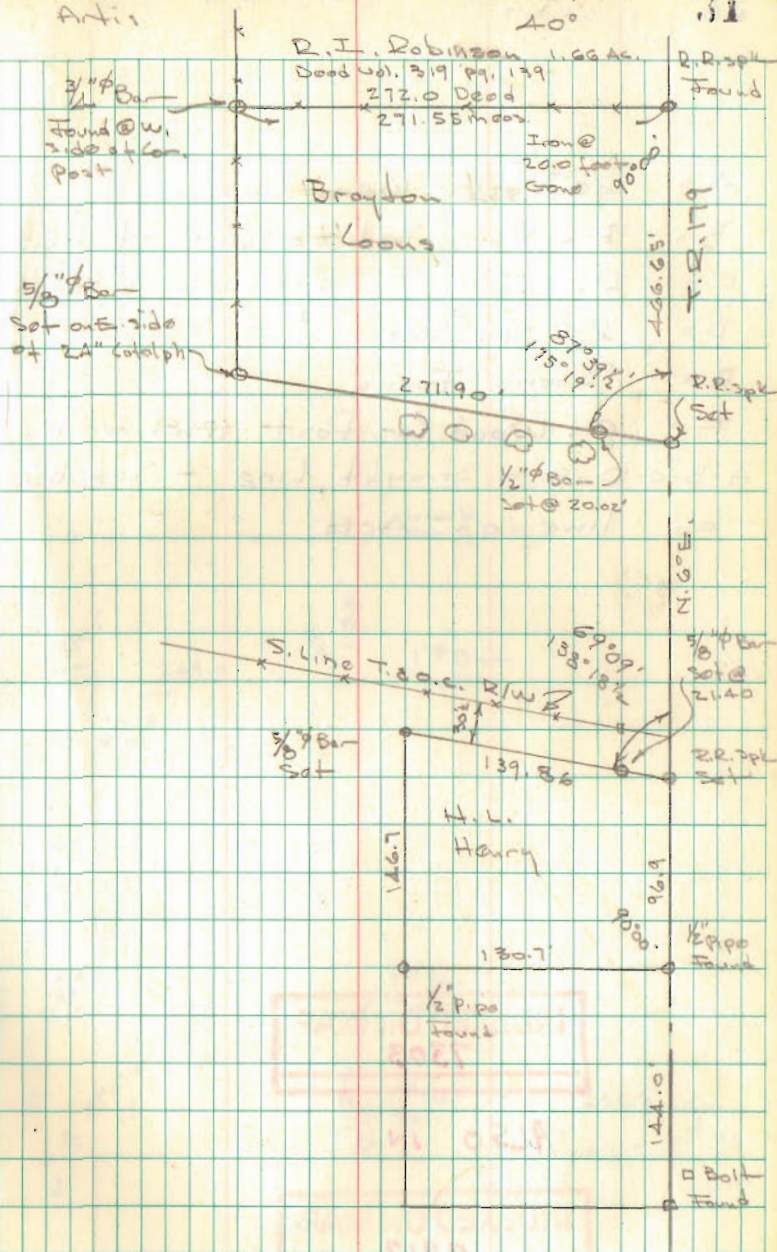 Artis
40°
31
R.I. Robinson 1.66 Ac.
Deed Vol. 319 pg. 139
272.0 Deed
271.55 meas.
R.R. spk
Found
3/4" ⌀ Bar
Found @ W.
side of Cor.
Post
Iron @
20.0 foot
Gone
90°00'
Brayton
Coons
T.R. 179
466.65'
5/8" ⌀ Bar
Set on E. side
of 24" Catalph
271.90'
87°39½'
175°19'
R.R. spk
Set
1/2" ⌀ Bar
Set @ 20.02'
N.6°E.
S. Line T.&O.C. R/W
69°09'
138°18½
5/8" ⌀ Bar
Set @
21.40
30'
5/8" ⌀ Bar
Set
139.86
R.R. spk
Set
H.L.
Henry
146.7
96.9
90°00'
130.7'
1/2" pipe
Found
1/2" pipe
Found
144.0'
□ Bolt
Found